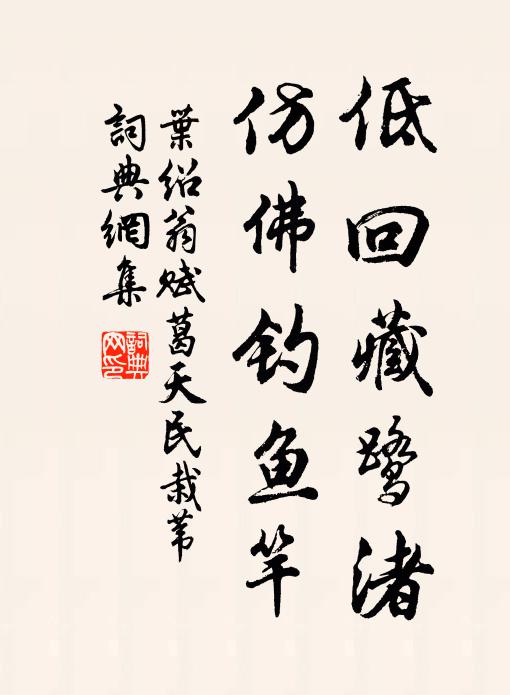 低回藏鹭渚
仿佛钓鱼竿
葉紹翁赋葛天民栽苇
詞典網集
詞典網印